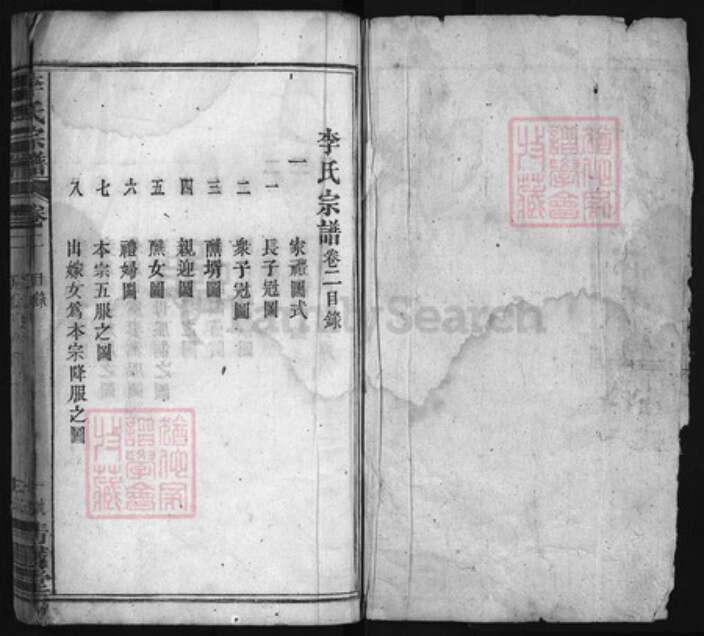 李氏宗譜卷二目錄
一 家禮圖式
一 長子冠圖
二 衆子冠圖
三 醮壻圖
四 親迎圖
五 醮女圖
六 禮婦圖
七 本宗五服之圖
八 出嫁女爲本宗降服之圖
李氏宗譜 卷二 目錄
FamilySearch